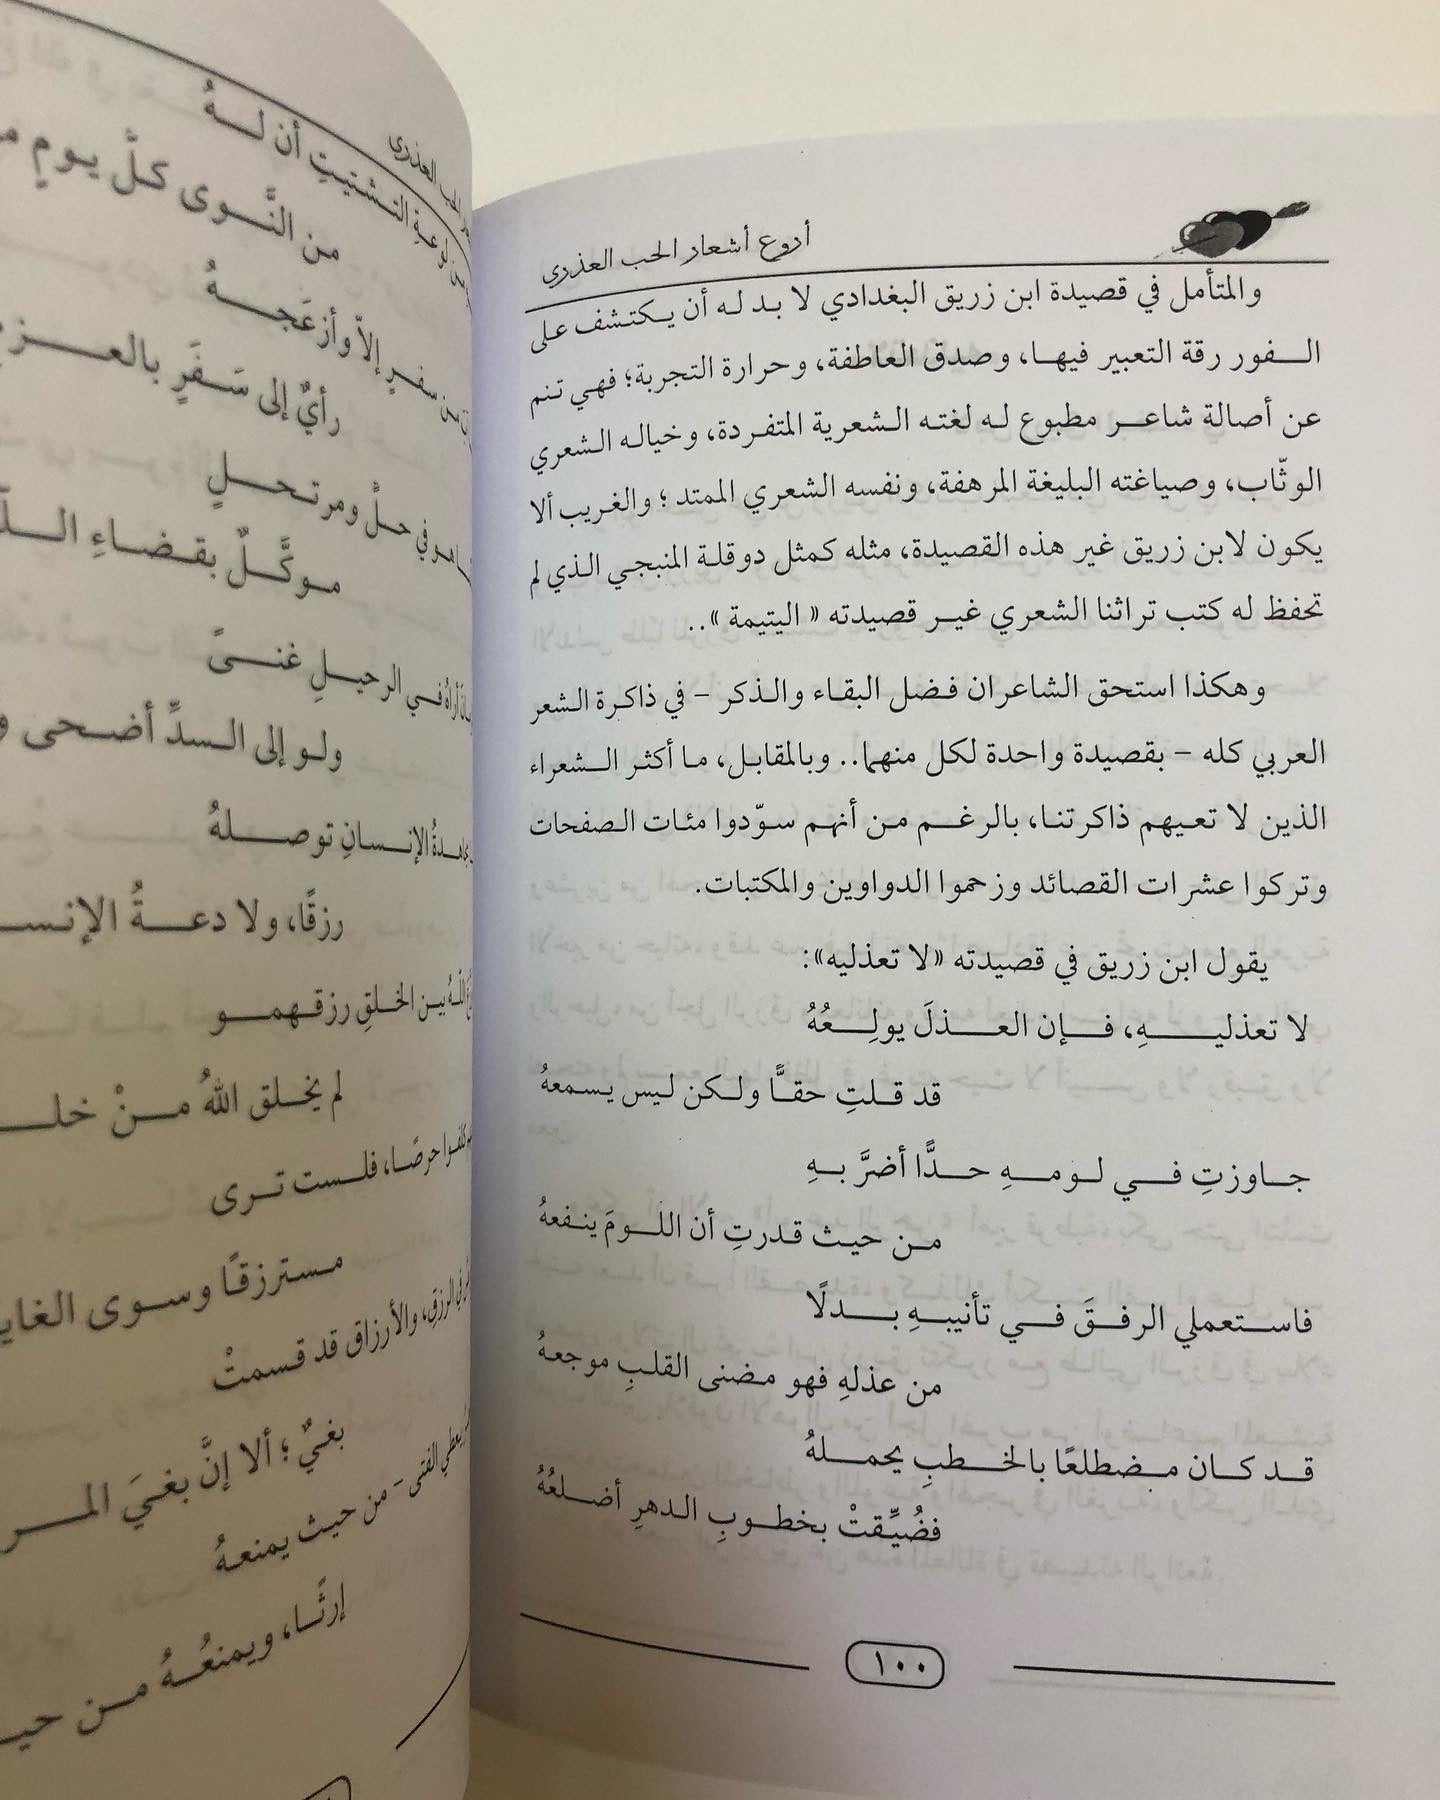 أروع أشعار الحب العذرى
والمتأمل في قصيدة ابن زريق البغدادي لا بد له أن يكتشف على
الفور رقة التعبير فيها، وصدق العاطفة، وحرارة التجربة؛ فهي تنم
عن أصالة شاعر مطبوع له لغته الشعرية المتفردة، وخياله الشعري
الوثّاب، وصياغته البليغة المرهفة، ونفسه الشعري الممتد؛ والغريب ألا
يكون لابن زريق غير هذه القصيدة، مثله كمثل دوقلة المنبجي الذي لم
تحفظ له كتب تراثنا الشعري غير قصيدته «اليتيمة»..
وهكذا استحق الشاعران فضل البقاء والذكر – في ذاكرة الشعر
العربي كله – بقصيدة واحدة لكل منهما.. وبالمقابل، ما أكثر الشعراء
الذين لا تعيهم ذاكرتنا، بالرغم من أنهم سوّدوا مئات الصفحات
وتركوا عشرات القصائد وزحموا الدواوين والمكتبات.
يقول ابن زريق في قصيدته «لا تعذليه»:
لا تعذليهِ، فإن العذلَ يولِعُهُ
قد قلتِ حقًّا ولكن ليس يسمعهُ
جاوزتِ في لومهِ حدًّا أضرَّ بهِ
من حيث قدرتِ أن اللومَ ينفعهُ
فاستعملي الرفقَ في تأنيبهِ بدلًا
من عذلهِ فهو مضنى القلبِ موجعهُ
قد كان مضطلعًا بالخطبِ يحملهُ
فضُيِّقتْ بخطوبِ الدهرِ أضلعُهُ
١٠٠
الحب العذرى
لوعةِ التشتيتِ أن لهُ
من النَّوى كلَّ يومٍ
من سفرٍ إلاّ وأزعَجهُ
رأيٌ إلى سَفَرٍ بالعزمِ
هو في حلٍّ ومرتحلٍ
موكَّلٌ بقضاءِ
أراهُ في الرحيلِ غنىً
ولو إلى السدِّ أضحى
الإنسانِ توصلهُ
رزقًا، ولا دعةُ
بين الخلقِ رزقهمو
لم يخلق اللهُ منْ
كلفوا حرصًا، فلست ترى
مسترزقًا وسوى
في الرزقِ، والأرزاق قد قسمتْ
بغيٌ؛ ألا إنَّ بغيَ
يعطي الفتى – من حيث يمنعهُ
إرثًا، ويمنعُهُ من